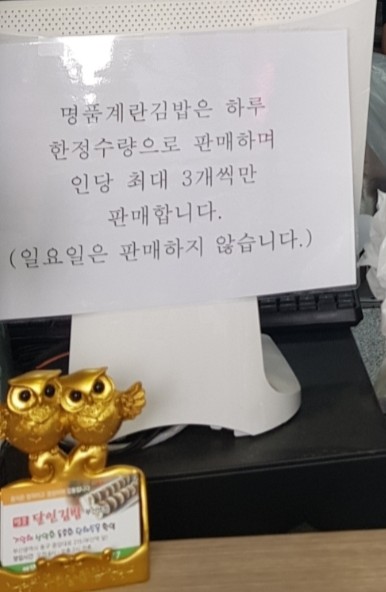 명품계란김밥은 하루
한정수량으로 판매하며
인당 최대 3개씩만
판매합니다.
(일요일은 판매하지 않습니다.)
달인김밥